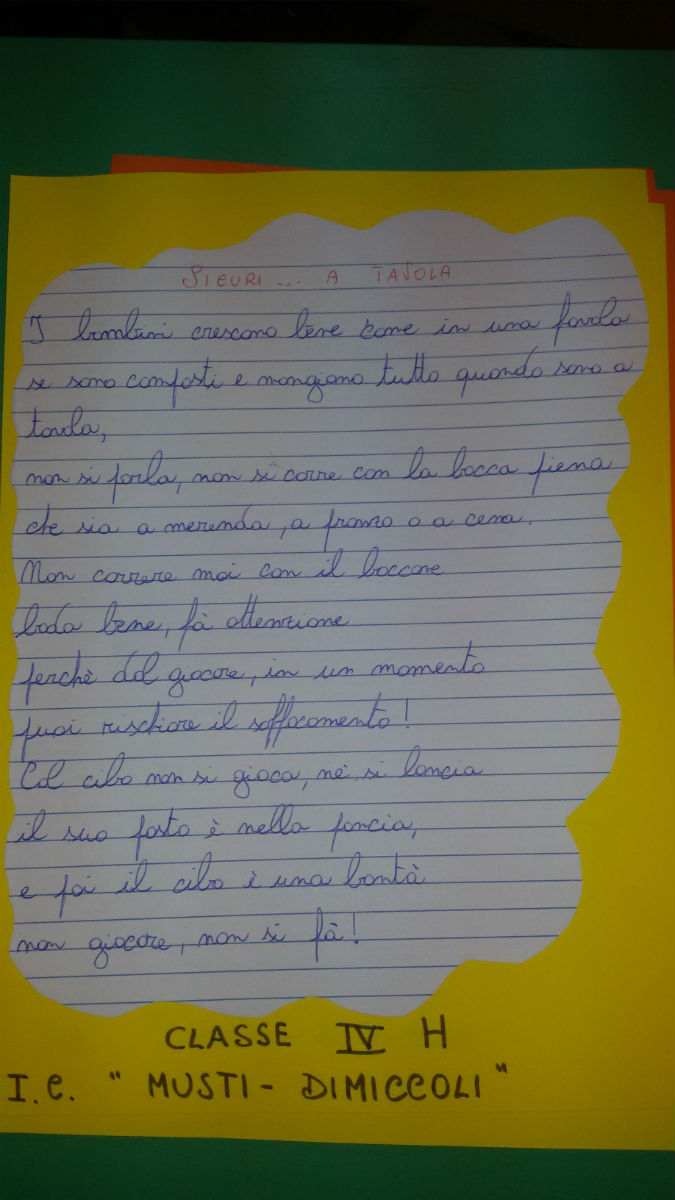 SICURI... A TAVOLA
I bambini crescono bene come in una favola
se sono composti e mangiano tutto quando sono a
tavola,
non si parla, non si corre con la bocca piena
che sia a merenda, a pranzo o a cena.
Non correre mai con il boccone
bada bene, fà attenzione
perchè dal giocare, in un momento
puoi rischiare il soffocamento!
Col cibo non si gioca, nè si lancia
il suo posto è nella pancia,
e poi il cibo è una bontà
non giocare, non si fà!
CLASSE IV H
I.C. "MUSTI-DIMICCOLI"